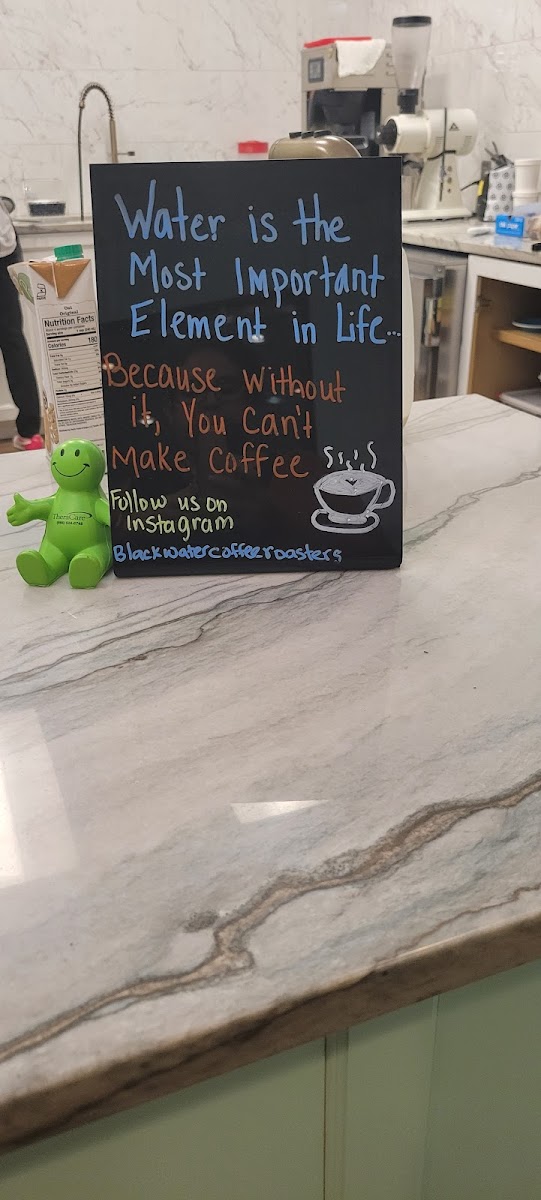 Water is the
Most Important
Element in Life...
Because without
it, You Can't
Make Coffee
Follow us on
Instagram
Blackwatercoffeeroasters
Oat
Original
Nutrition Facts
Calories 180
TheraCare